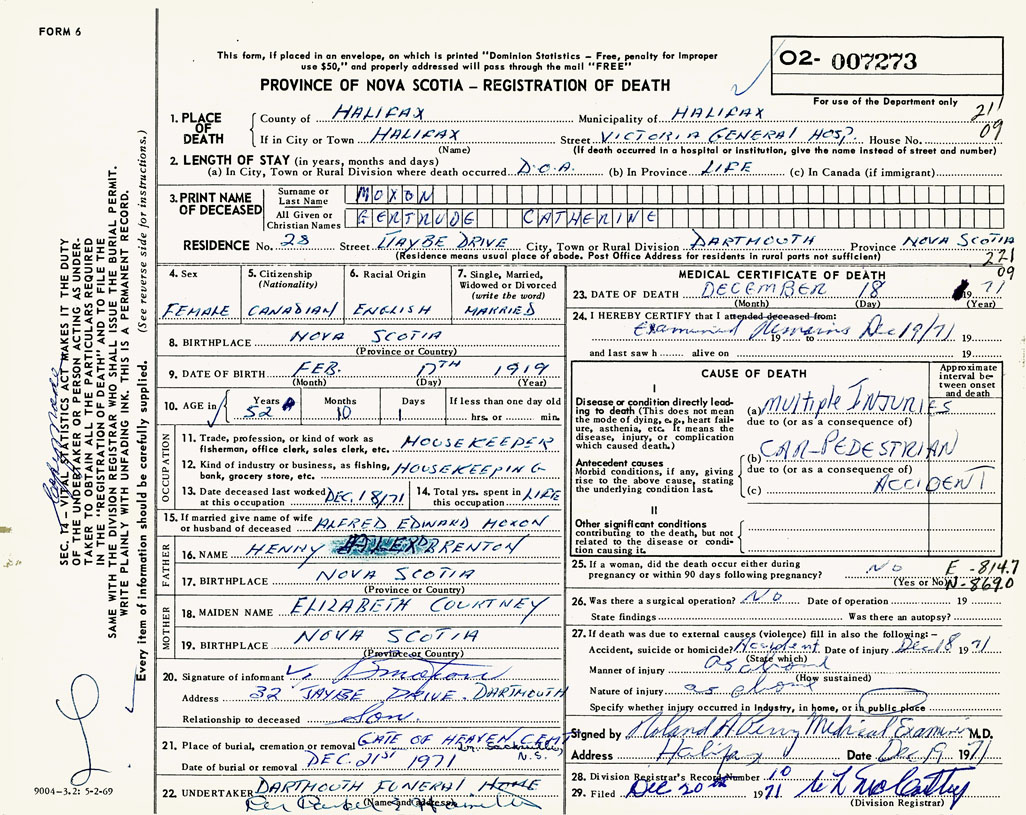 FORM 6
This form, if placed in an envelope, on which is printed "Dominion Statistics – Free, penalty for improper
use $50," and properly addressed will pass through the mail "FREE"
PROVINCE OF NOVA SCOTIA – REGISTRATION OF DEATH
O2- 007273
For use of the Department only
21
09
1. PLACE OF DEATH
County of HALIFAX Municipality of HALIFAX
If in City or Town HALIFAX Street VICTORIA GENERAL HOSP. House No.
(Name) (If death occurred in a hospital or institution, give the name instead of street and number)
2. LENGTH OF STAY (in years, months and days)
(a) In City, Town or Rural Division where death occurred D.O.A. (b) In Province LIFE (c) In Canada (if immigrant)
3. PRINT NAME OF DECEASED
Surname or Last Name MOXON
All Given or Christian Names GERTRUDE CATHERINE
RESIDENCE No. 28 Street JAYBE DRIVE City, Town or Rural Division DARTMOUTH Province NOVA SCOTIA
(Residence means usual place of abode. Post Office Address for residents in rural parts not sufficient)
221
09
4. Sex
FEMALE
5. Citizenship
(Nationality)
CANADIAN
6. Racial Origin
ENGLISH
7. Single, Married,
Widowed or Divorced
(write the word)
MARRIED
8. BIRTHPLACE NOVA SCOTIA
(Province or Country)
9. DATE OF BIRTH FEB. 17TH 1919
(Month) (Day) (Year)
10. AGE in
Years
52
Months
10
Days
1
If less than one day old
hrs. or min.
OCCUPATION
11. Trade, profession, or kind of work as
fisherman, office clerk, sales clerk, etc. HOUSEKEEPER
12. Kind of industry or business, as fishing,
bank, grocery store, etc. HOUSEKEEPING
13. Date deceased last worked
at this occupation DEC. 18/71
14. Total yrs. spent in
this occupation LIFE
15. If married give name of wife
or husband of deceased ALFRED EDWARD MOXON
FATHER
16. NAME HENNY BRENTON
17. BIRTHPLACE NOVA SCOTIA
(Province or Country)
MOTHER
18. MAIDEN NAME ELIZABETH COURTNEY
19. BIRTHPLACE NOVA SCOTIA
(Province or Country)
20. Signature of informant
Address 32 JAYBE DRIVE. DARTMOUTH
Relationship to deceased Son.
21. Place of burial, cremation or removal GATE OF HEAVEN CEMT
Lr. Sackville,
N.S.
Date of burial or removal DEC. 21st 1971
22. UNDERTAKER DARTMOUTH FUNERAL HOME
(Name and address)
MEDICAL CERTIFICATE OF DEATH
23. DATE OF DEATH DECEMBER 18 19 71
(Month) (Day) (Year)
24. I HEREBY CERTIFY that I attended deceased from:
Examined Remains Dec 19/71
19 to 19
and last saw h alive on 19
CAUSE OF DEATH
Approximate
interval be-
tween onset
and death
I
Disease or condition directly lead-
ing to death (This does not mean
the mode of dying, e.g., heart fail-
ure, asthenia, etc. It means the
disease, injury, or complication
which caused death.)
(a) MULTIPLE INJURIES
due to (or as a consequence of)
Antecedent causes
Morbid conditions, if any, giving
rise to the above cause, stating
the underlying condition last.
(b) CAR-PEDESTRIAN
due to (or as a consequence of)
(c) ACCIDENT
II
Other significant conditions
contributing to the death, but not
related to the disease or condi-
tion causing it.
25. If a woman, did the death occur either during
pregnancy or within 90 days following pregnancy? NO
(Yes or No)
E -814.7
N-869.0
26. Was there a surgical operation? NO Date of operation 19
State findings Was there an autopsy?
27. If death was due to external causes (violence) fill in also the following:–
Accident, suicide or homicide? Accident Date of injury Dec 18 19 71
(State which)
Manner of injury as above
(How sustained)
Nature of injury as above
Specify whether injury occurred in industry, in home, or in public place
Signed by Roland A Perry Medical Examiner M.D.
Address Halifax Date Dec 19 1971
28. Division Registrar's Record Number 10
29. Filed Dec 20th 1971
(Division Registrar)
SEC. 14 – VITAL STATISTICS ACT MAKES IT THE DUTY
OF THE UNDERTAKER OR PERSON ACTING AS UNDER-
TAKER TO OBTAIN ALL THE PARTICULARS REQUIRED
IN THE "REGISTRATION OF DEATH" AND TO FILE THE
SAME WITH THE DIVISION REGISTRAR WHO SHALL ISSUE THE BURIAL PERMIT.
WRITE PLAINLY WITH UNFADING INK. THIS IS A PERMANENT RECORD.
Every item of information should be carefully supplied. (See reverse side for instructions.)
9004-3.2: 5-2-69